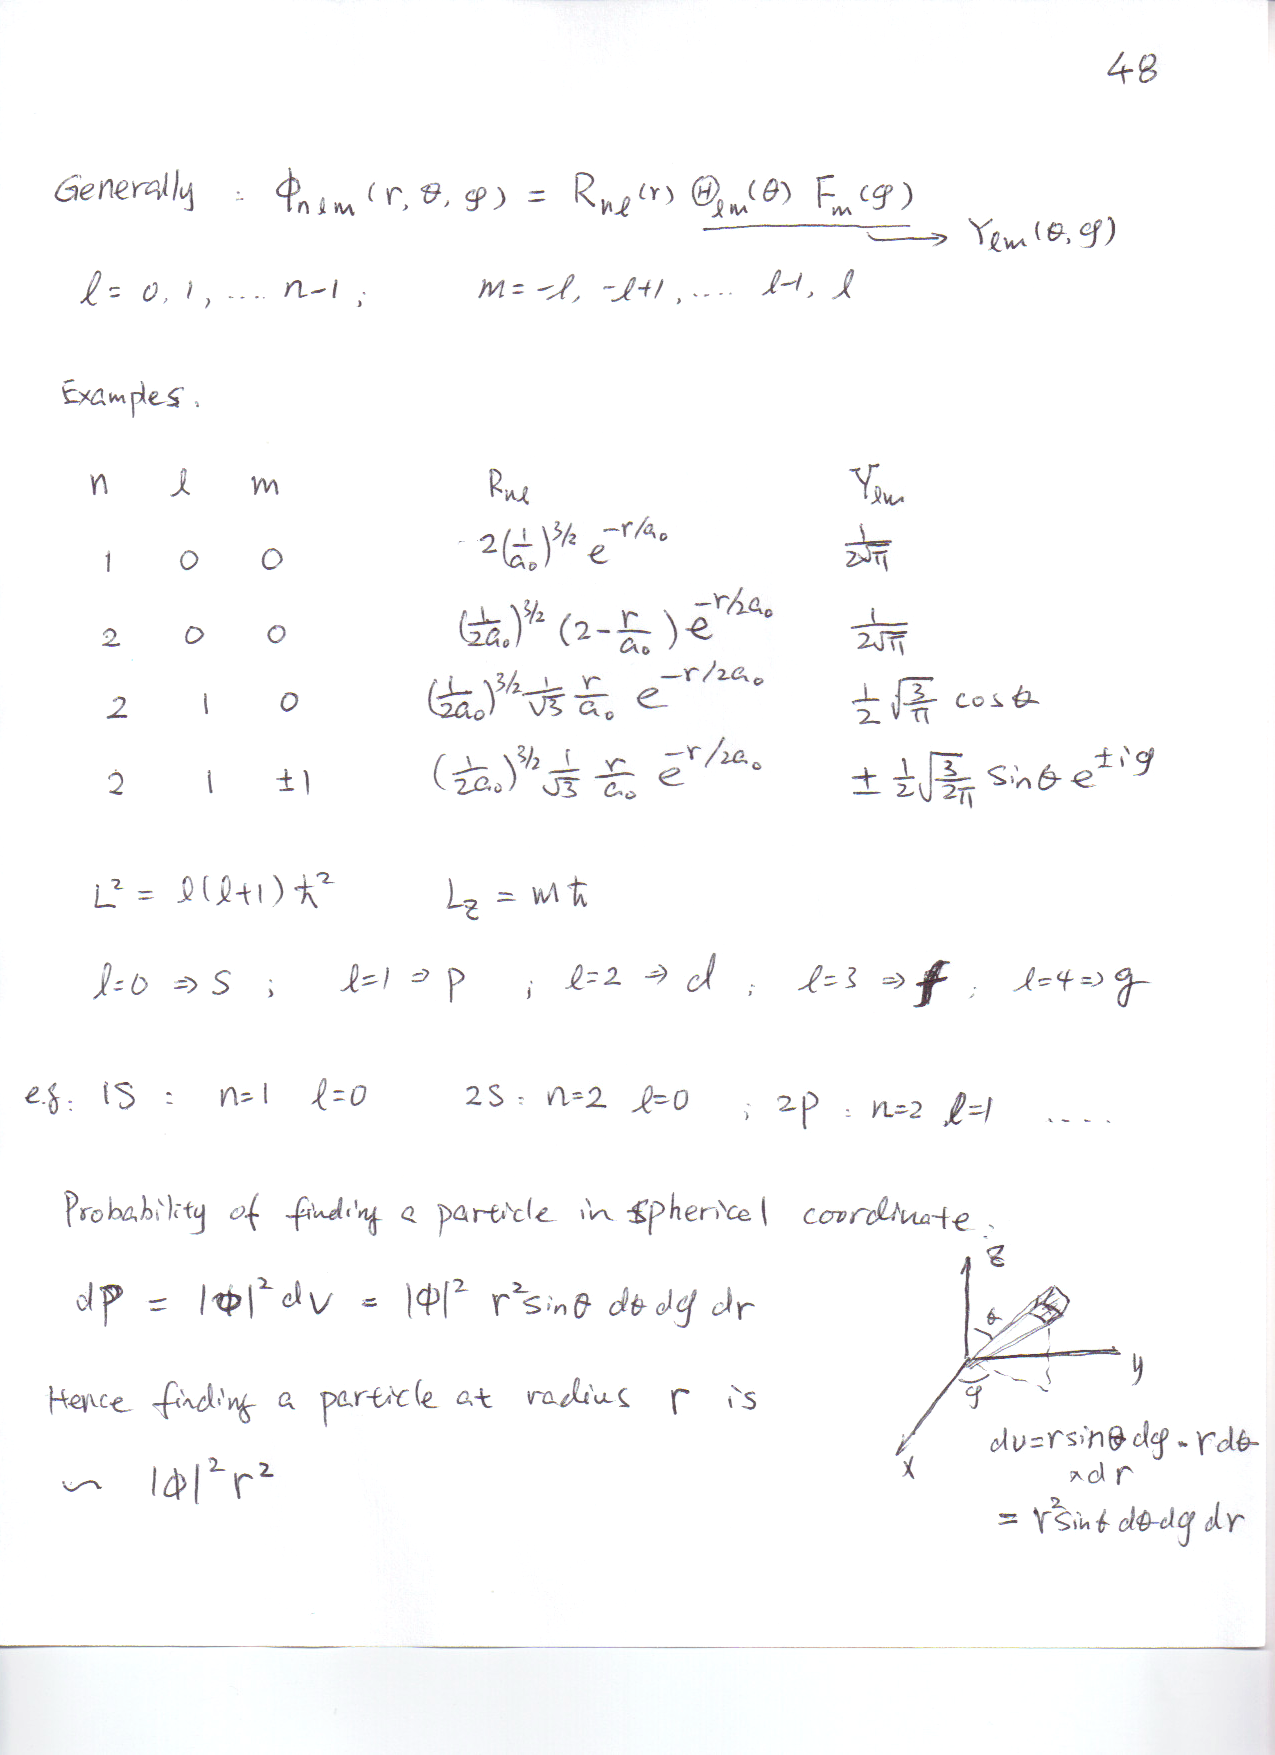 48
Generally : Φnlm (r, θ, φ) = Rnl(r) Θlm(θ) Fm(φ) → Ylm(θ, φ)
l = 0, 1, .... n-1 ; m = -l, -l+1, .... l-1, l
Examples.
n l m Rnl Ylm
1 0 0 2(1/a₀)^3/2 e^-r/a₀ 1/2√π
2 0 0 (1/2a₀)^3/2 (2 - r/a₀) e^-r/2a₀ 1/2√π
2 1 0 (1/2a₀)^3/2 1/√3 r/a₀ e^-r/2a₀ 1/2 √3/π cosθ
2 1 ±1 (1/2a₀)^3/2 1/√3 r/a₀ e^-r/2a₀ ± 1/2 √3/2π Sinθ e^±iφ
L² = l(l+1) ħ² Lz = mħ
l=0 ⇒ S ; l=1 ⇒ p ; l=2 ⇒ d ; l=3 ⇒ f ; l=4 ⇒ g
e.g. 1S : n=1 l=0 2S : n=2 l=0 ; 2p : n=2 l=1 ....
Probability of finding a particle in spherical coordinate :
dP = |Φ|² dv = |Φ|² r² sinθ dθ dφ dr
Hence finding a particle at radius r is
~ |Φ|² r²
z
θ
y
φ
x
dv = r sinθ dφ · r dθ
× dr
= r² sinθ dθ dφ dr